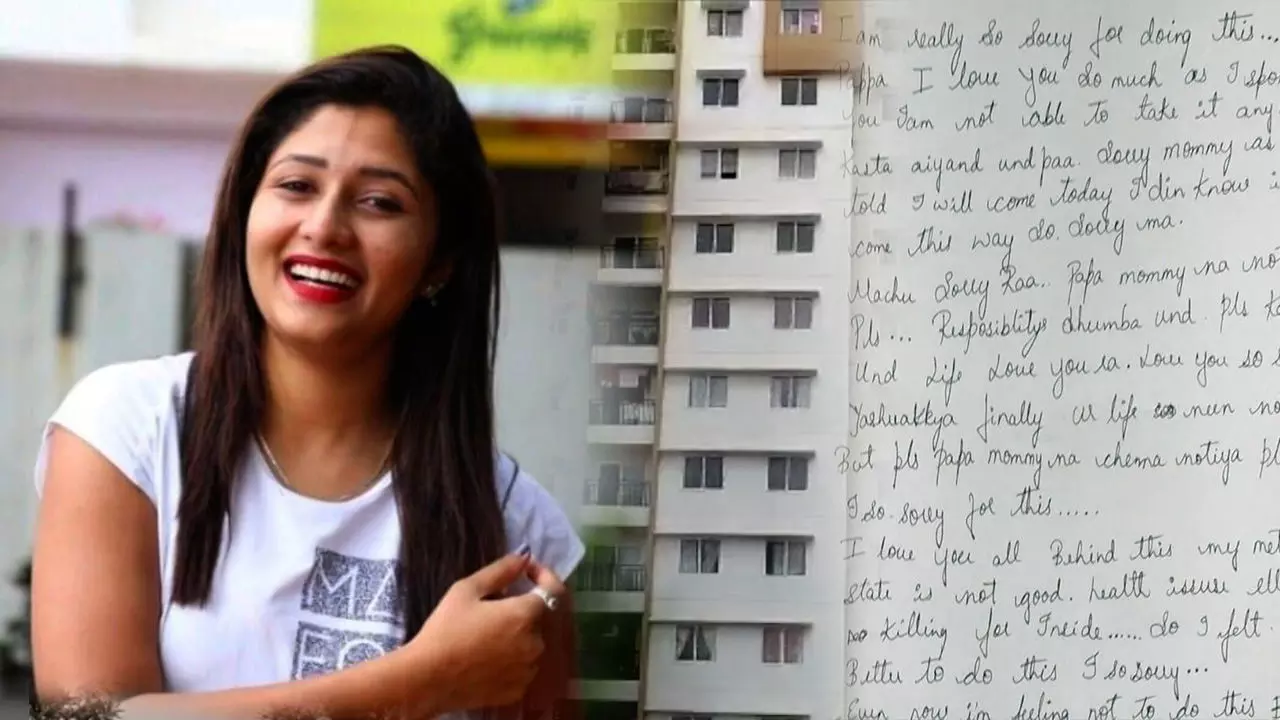 MA
FO
I am really so sorry for doing this...
Pappa I love you so much as I
you I am not able to take it any
Kasta aiyand und paa. Sorry mommy as
told I will come today I din know
come this way so. Sorry ma.
Machu Sorry Raa.. Papa mommy na
Pls... Resposiblitys dhumba und. pls
Und Life Love you ra. Love you so
Yashuakkya finally ur life neen
But pls papa mommy na chenna notiya
I so. sorry for this.....
I love you all Behind this my
state is not good. health issue
Killing for Inside...... So I felt
Better to do this I so sorry...
Even now i'm feeling not to do this